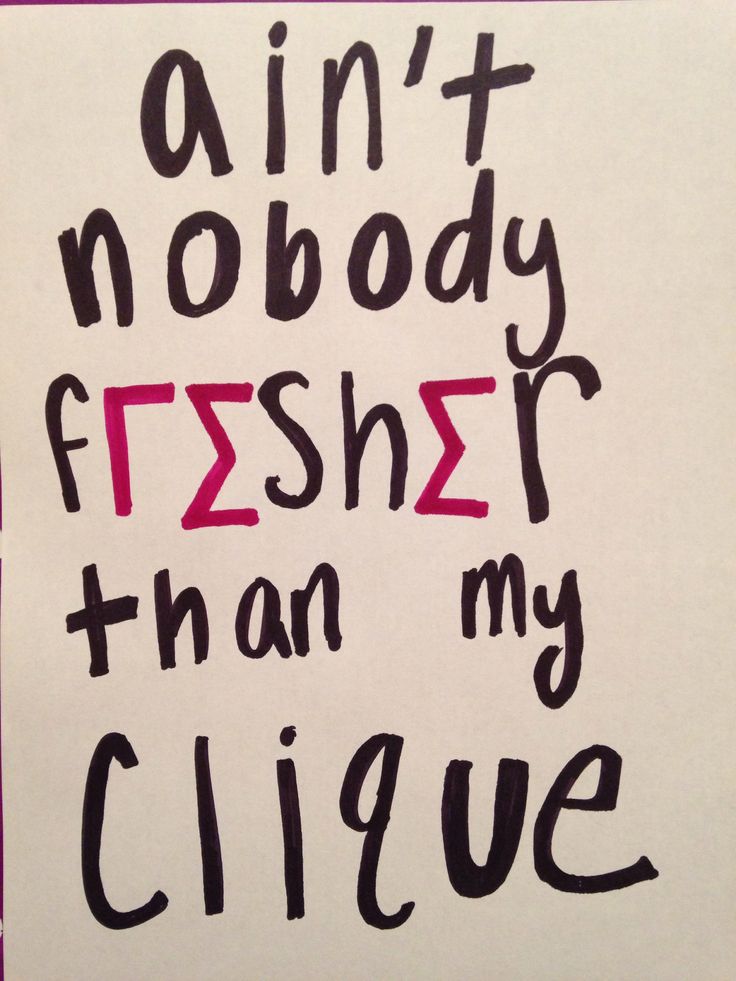 ain't
nobody
fΓΣshΣr
than my
clique